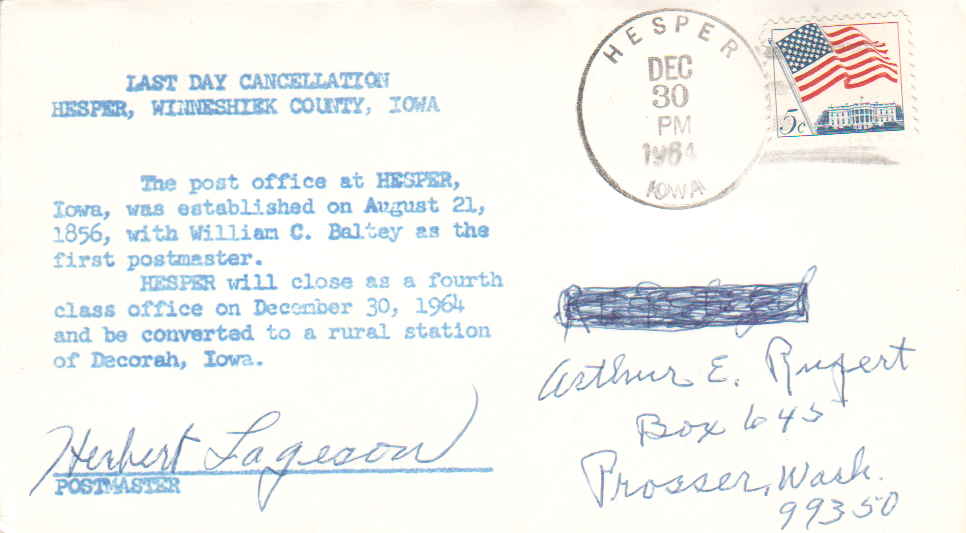 LAST DAY CANCELLATION
HESPER, WINNESHIEK COUNTY, IOWA
The post office at HESPER,
Iowa, was established on August 21,
1856, with William C. Baltey as the
first postmaster.
HESPER will close as a fourth
class office on December 30, 1964
and be converted to a rural station
of Decorah, Iowa.
Herbert Lageson
POSTMASTER
HESPER
DEC
30
PM
1964
IOWA
5c
Arthur E. Rupert
Box 645
Prosser, Wash.
99350